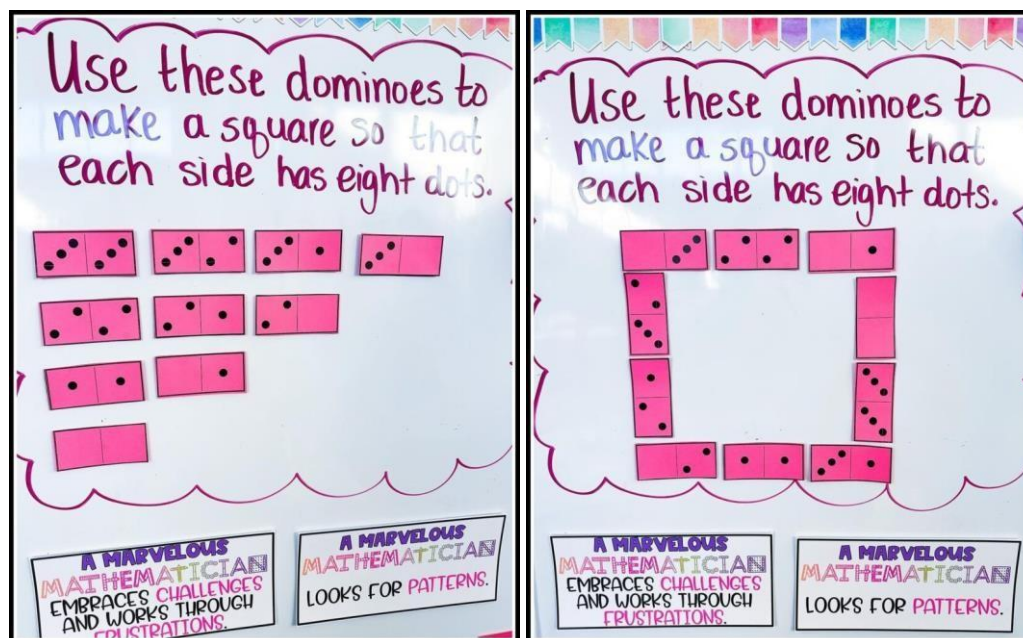 Use these dominoes to
make a square so that
each side has eight dots.
A MARVELOUS
MATHEMATICIAN
EMBRACES CHALLENGES
AND WORKS THROUGH
FRUSTRATIONS.
A MARVELOUS
MATHEMATICIAN
LOOKS FOR PATTERNS.
Use these dominoes to
make a square so that
each side has eight dots.
A MARVELOUS
MATHEMATICIAN
EMBRACES CHALLENGES
AND WORKS THROUGH
FRUSTRATIONS.
A MARVELOUS
MATHEMATICIAN
LOOKS FOR PATTERNS.